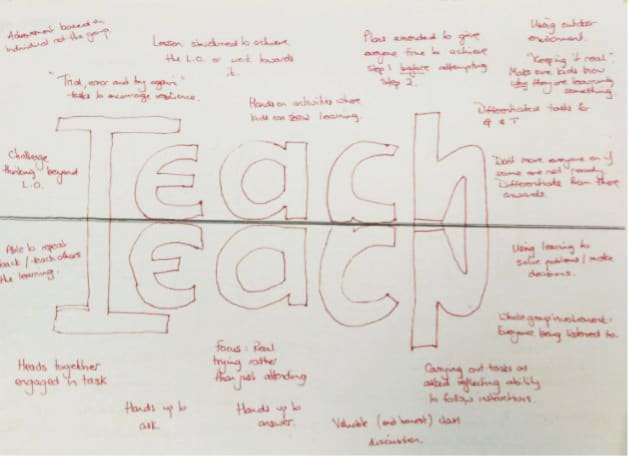 Achievement based on
individual not the group.
Lesson structured to achieve
the L.O. or work towards
it.
Plans amended to give
everyone time to achieve
Step 1 before attempting
Step 2.
Using outdoor
environment.
"Keeping it real".
Make sure kids know
why they are learning
something.
"Trial, error and try again"
tasks to encourage resilience.
Hands on activities where
kids can show learning.
Differentiated tasks for
G & T
Teach
Challenge
thinking beyond
L.O.
Don't move everyone on if
some are not ready.
Differentiate from there
onwards.
Teach
Able to repeat
back / teach others
the learning.
Using learning to
solve problems / make
decisions.
Whole group involvement.
Everyone being listened to.
Heads together
engaged in task
Focus: Real
trying rather
than just attending
Carrying out tasks as
asked reflecting ability
to follow instructions.
Hands up to
ask
Hands up to
answer.
Valuable (and honest) class
discussion.